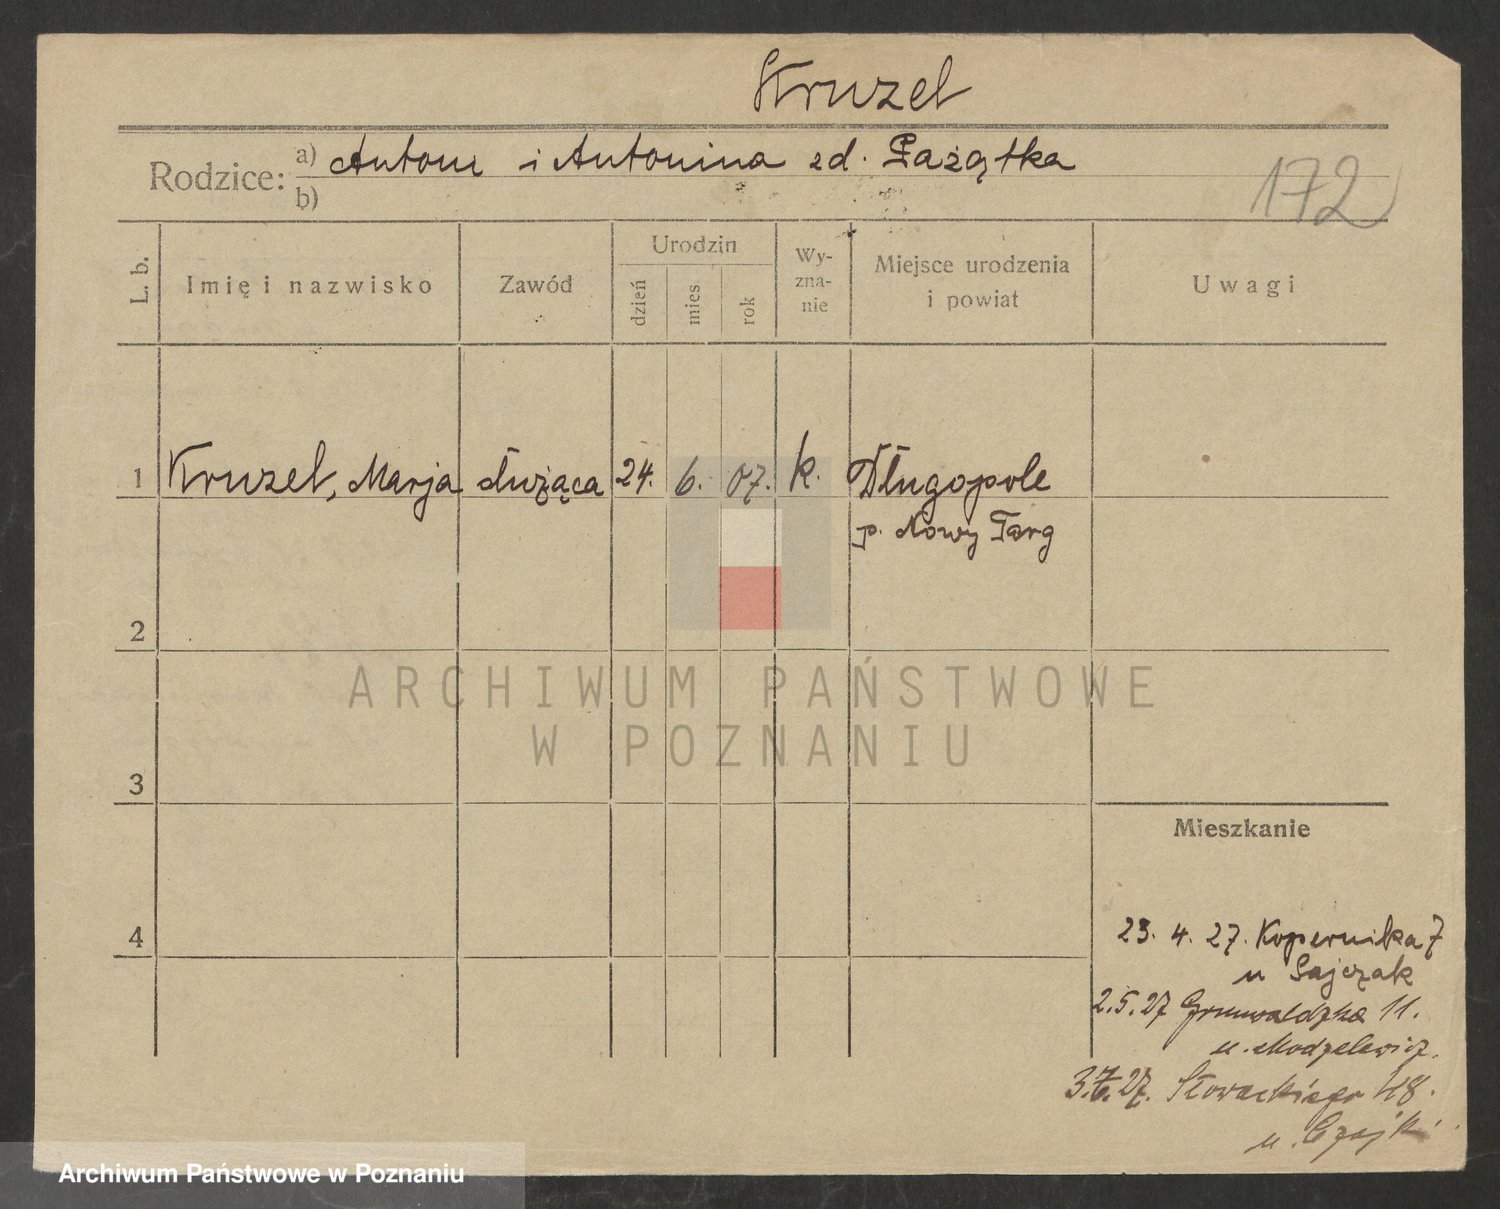 Kruzel
Rodzice: a) Antoni i Antonina zd. Pażątka
b)
172
L. b.
Imię i nazwisko
Zawód
Urodzin
dzień
mies
rok
Wy-
zna-
nie
Miejsce urodzenia
i powiat
Uwagi
1 Kruzel, Marja służąca 24. 6. 07. k. Długopole
p. Nowy Targ
2
3
4
Mieszkanie
23. 4. 27. Kopernika 7
u Sajczak
2.5.27 Grunwaldzka 11.
u. Modzelewicz.
27. Słowackiego 48.
u.
ARCHIWUM PAŃSTWOWE
W POZNANIU
Archiwum Państwowe w Poznaniu